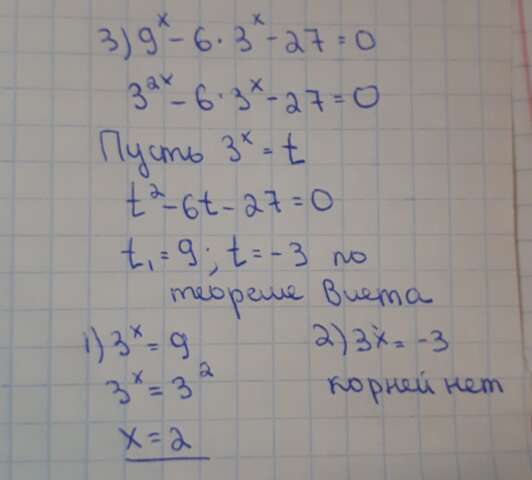 3) 9ˣ - 6 · 3ˣ - 27 = 0
3²ˣ - 6 · 3ˣ - 27 = 0
Пусть 3ˣ = t
t² - 6t - 27 = 0
t₁ = 9; t = -3 по
теореме Виета
1) 3ˣ = 9
3ˣ = 3²
x = 2
2) 3ˣ = -3
корней нет